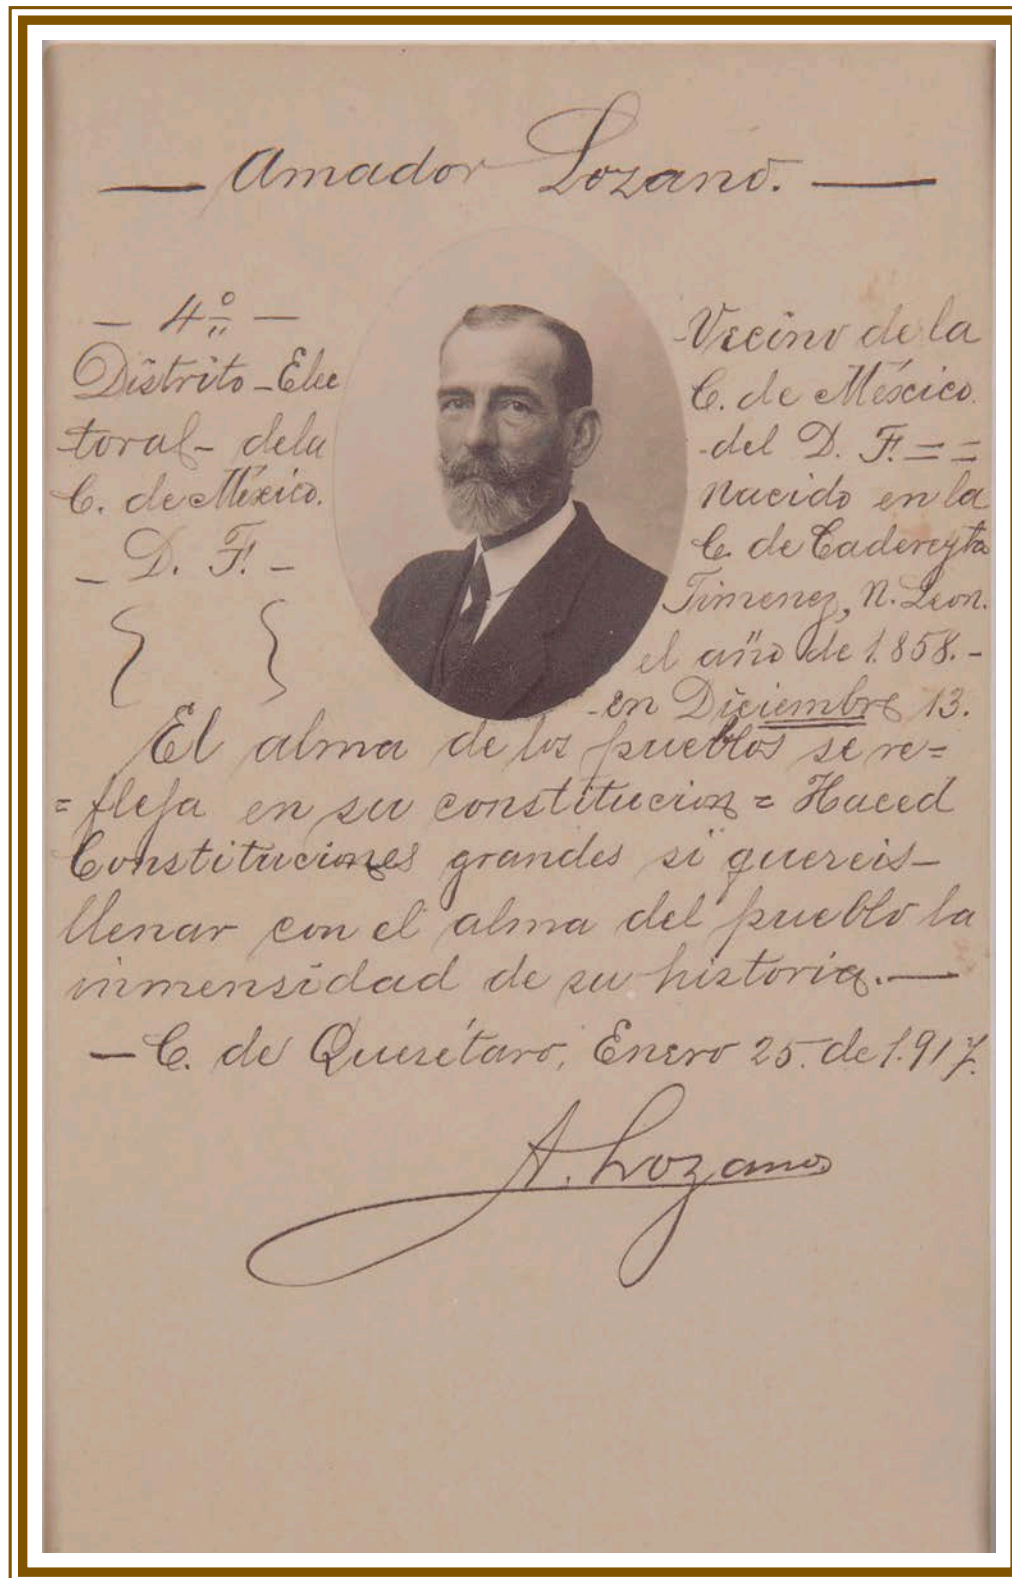 — Amador Lozano. —
— 4º —
Distrito - Elec
toral - dela
C. de México.
— D. F. —
Vecino de la
C. de México.
- del D. F. = =
Nacido en la
C. de Cadereyta
Jimenez, N. Leon.
el año de 1.858. -
- en Diciembre 13.
El alma de los pueblos se re=
= fleja en su constitucion = Haced
Constituciones grandes si quereis -
llenar con el alma del pueblo la
inmensidad de su historia. —
— C. de Querétaro, Enero 25. de 1.917.
A. Lozano